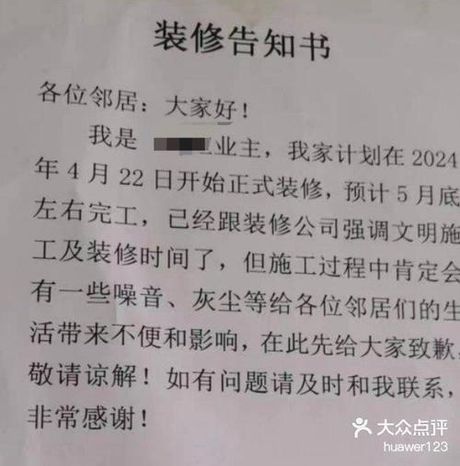 装修告知书
各位邻居：大家好！
我是 业主，我家计划在2024
年4月22日开始正式装修，预计5月底
左右完工，已经跟装修公司强调文明施
工及装修时间了，但施工过程中肯定会
有一些噪音、灰尘等给各位邻居们的生
活带来不便和影响，在此先给大家致歉，
敬请谅解！如有问题请及时和我联系，
非常感谢！
大众点评
huawer123